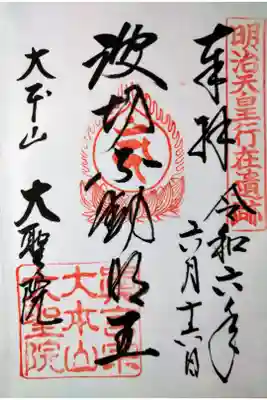 明治天皇行在遺跡
奉拝
令和六年
六月十六日
波切不動明王
大本山
大聖院
真言宗
大本山
大聖院